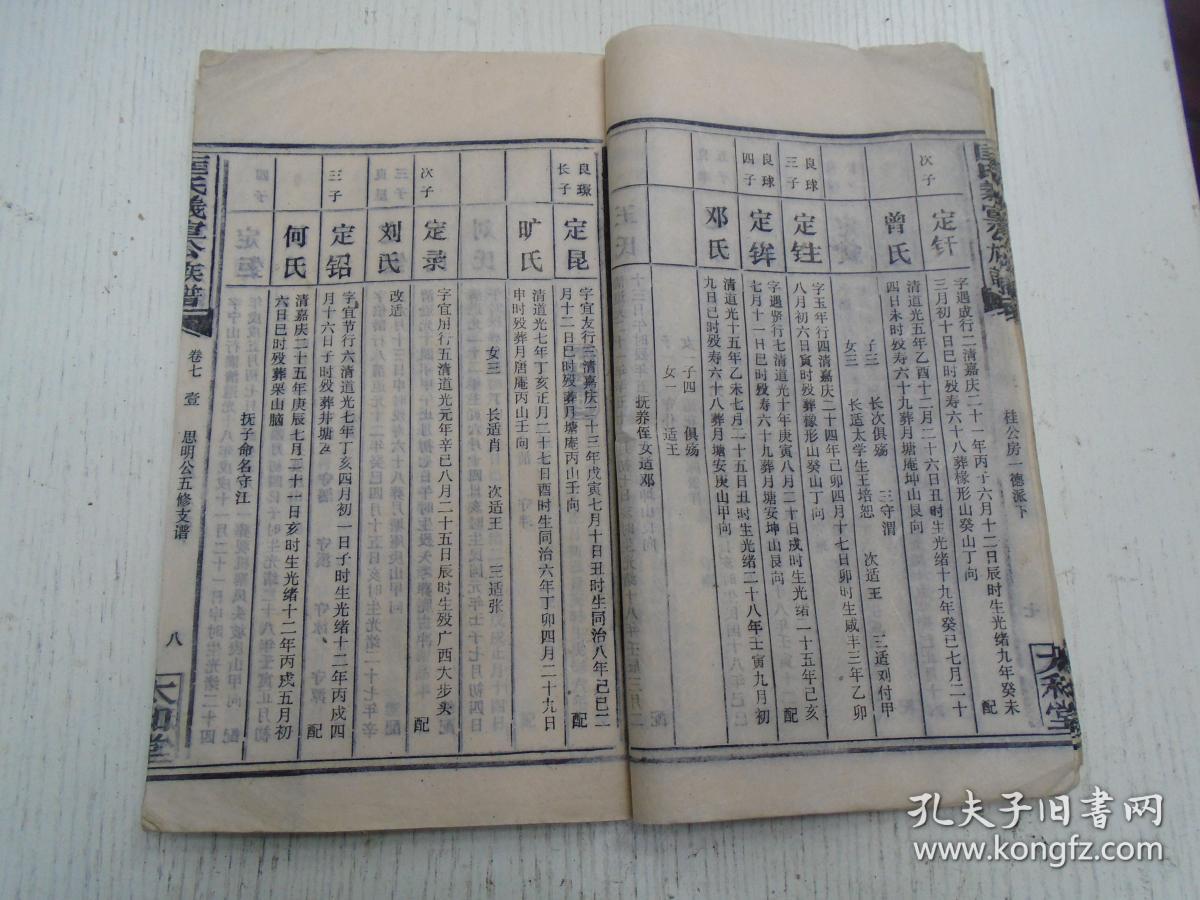 桂公房一德派下
七
次子
定钎
字遇成行二清嘉庆二十一年丙子六月十二日辰时生光绪九年癸未
三月初十日巳时殁寿六十八葬椽形山癸山丁向
配
曾氏
清道光五年乙酉十二月二十六日丑时生光绪十九年癸巳七月二十
四日未时殁寿六十九葬月塘庵坤山艮向
子三
长次俱殇
三守渭
女三
长适太学生王培恕
次适王
三适刘付甲
良球三子
定铨
字玉年行四清嘉庆二十四年己卯四月十七日卯时生咸丰三年乙卯
八月初六日寅时殁葬椽形山癸山丁向
良球四子
定锋
字遇贤行七清道光十年庚寅八月二十日戌时生光绪二十五年己亥
七月十一日巳时殁寿六十九葬月塘安坤山艮向
配
邓氏
清道光十五年乙未七月二十五日丑时生光绪二十八年壬寅九月初
九日巳时殁寿六十八葬月塘安庚山甲向
子四
俱殇
女一
适王
抚养侄女适邓
良璟长子
定昆
字宜友行三清嘉庆二十三年戊寅七月十日丑时生同治八年己巳二
月十二日巳时殁葬月塘庵丙山壬向
配
旷氏
清道光七年丁亥正月二十七日酉时生同治六年丁卯四月二十九日
申时殁葬月唐庵丙山壬向
女三
长适肖
次适王
三适张
次子
定录
字宜用行五清道光元年辛巳八月二十五日辰时生殁广西大步头
配
刘氏
改适
三子
定铅
字宜节行六清道光七年丁亥四月初一日子时生光绪十二年丙戌四
月十六日子时殁葬井塘
配
何氏
清嘉庆二十五年庚辰七月二十一日亥时生光绪十二年丙戌五月初
六日巳时殁葬栗山脑
抚子命名守江
匡氏义宣公族谱
卷七
壹
思明公五修支谱
八
大和堂
孔夫子旧书网
www.kongfz.com